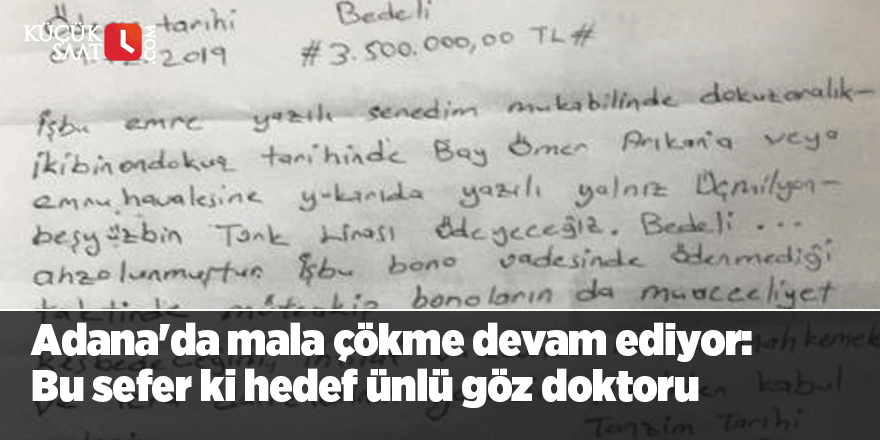 KÜÇÜK
SAAT
.COM
tarihi
Bedeli
2019 #3.500.000,00 TL#
İşbu emre yazılı senedim mukabilinde dokuzaralık-
ikibinondokuz tarihinde Bay Ömer Arıkan'a veya
emru havalesine yukarıda yazılı yalnız Üçmilyon-
beşyüzbin Türk Lirası ödeyeceğiz. Bedeli ...
ahzolunmuştur İşbu bono vadesinde ödenmediği
bonoların da muacceliyet
Adana'da mala çökme devam ediyor:
Bu sefer ki hedef ünlü göz doktoru
kabul
Tanzim Tarihi